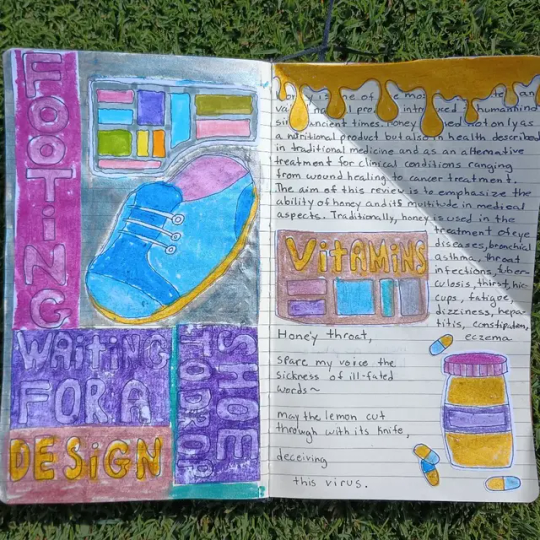 FOOTING
WAITING
FOR A
SHOE
TO DROP
DESIGN
is one of
introduced humankind
ancient times. Honey not only as
a nutritional product but also in health described
in traditional medicine and as an alternative
treatment for clinical conditions ranging
from wound healing to cancer treatment.
The aim of this review is to emphasize the
ability of honey and its multitude in medical
aspects. Traditionally, honey is used in the
treatment of eye
diseases, bronchial
asthma, throat
infections, tuber-
culosis, thirst, hic-
cups, fatigue,
dizziness, hepa-
titis, constipation,
eczema
VITAMINS
Honey throat,
spare my voice the
sickness of ill-fated
words~
may the lemon cut
through with its knife,
deceiving
this virus.